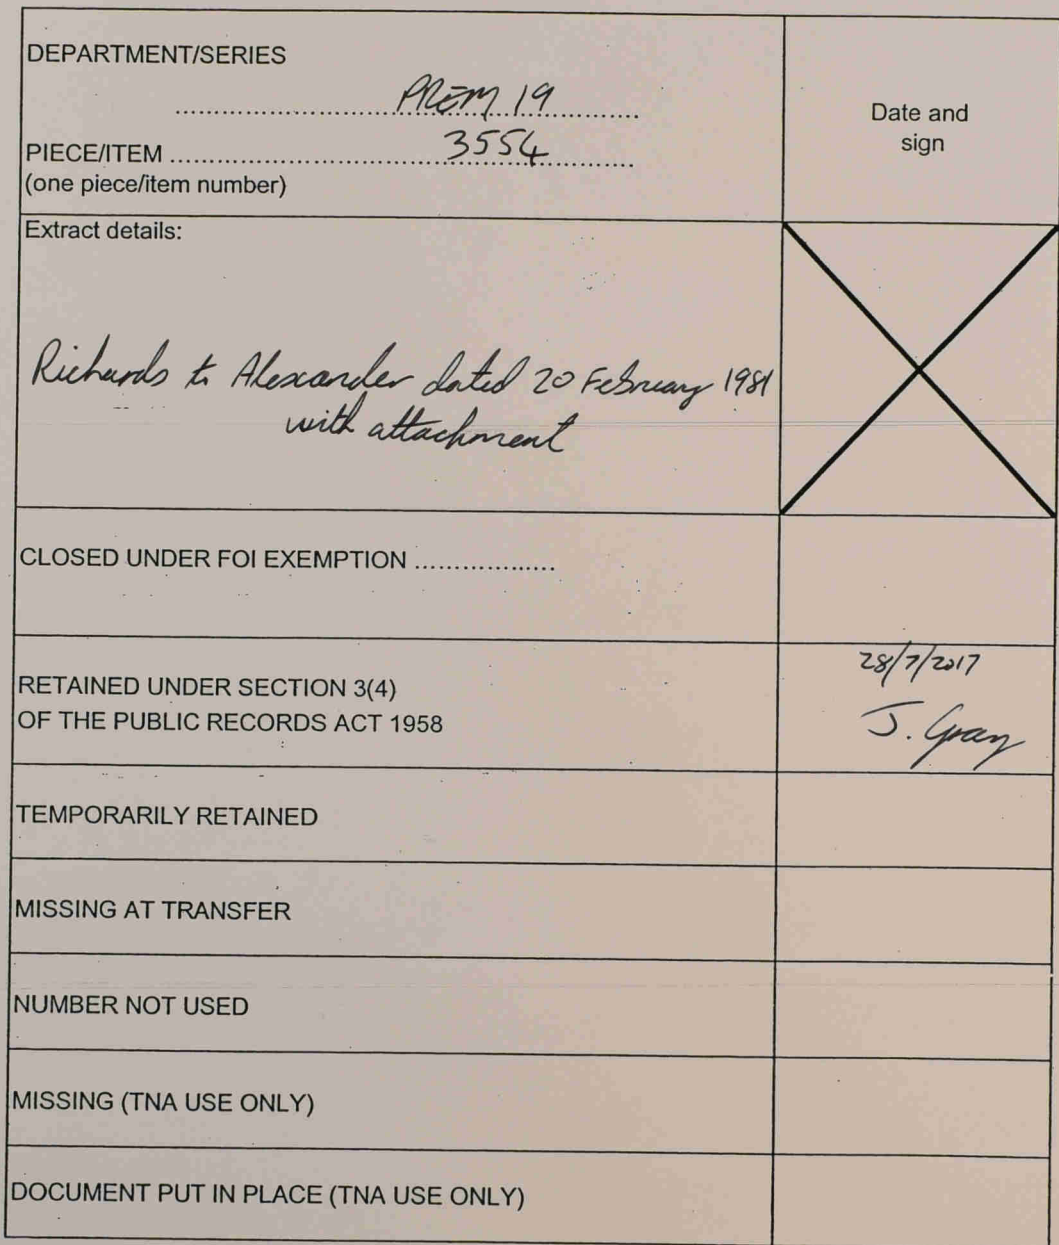 DEPARTMENT/SERIES
.................................PREM 19..................
Date and
sign
PIECE/ITEM ........................................3554............
(one piece/item number)
Extract details:
Richards to Alexander dated 20 February 1981
with attachment
CLOSED UNDER FOI EXEMPTION ..................
RETAINED UNDER SECTION 3(4)
OF THE PUBLIC RECORDS ACT 1958
28/7/2017
J. Gray
TEMPORARILY RETAINED
MISSING AT TRANSFER
NUMBER NOT USED
MISSING (TNA USE ONLY)
DOCUMENT PUT IN PLACE (TNA USE ONLY)